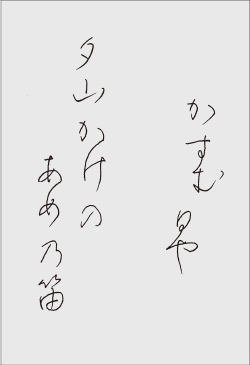 かすむ日や
夕山かけの
あめ乃笛